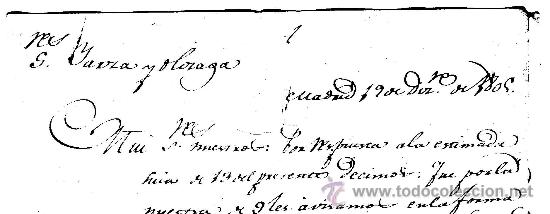 S.res Yarza y Olozaga
Madrid 19 de Dix.re de 1805.
Mui S.res nuestros: Por respuesta a la estimada
de 13 del presente decimos: Que por la
nuestra de 9 les avisamos en la forma
todocoleccion
www.todocoleccion.net